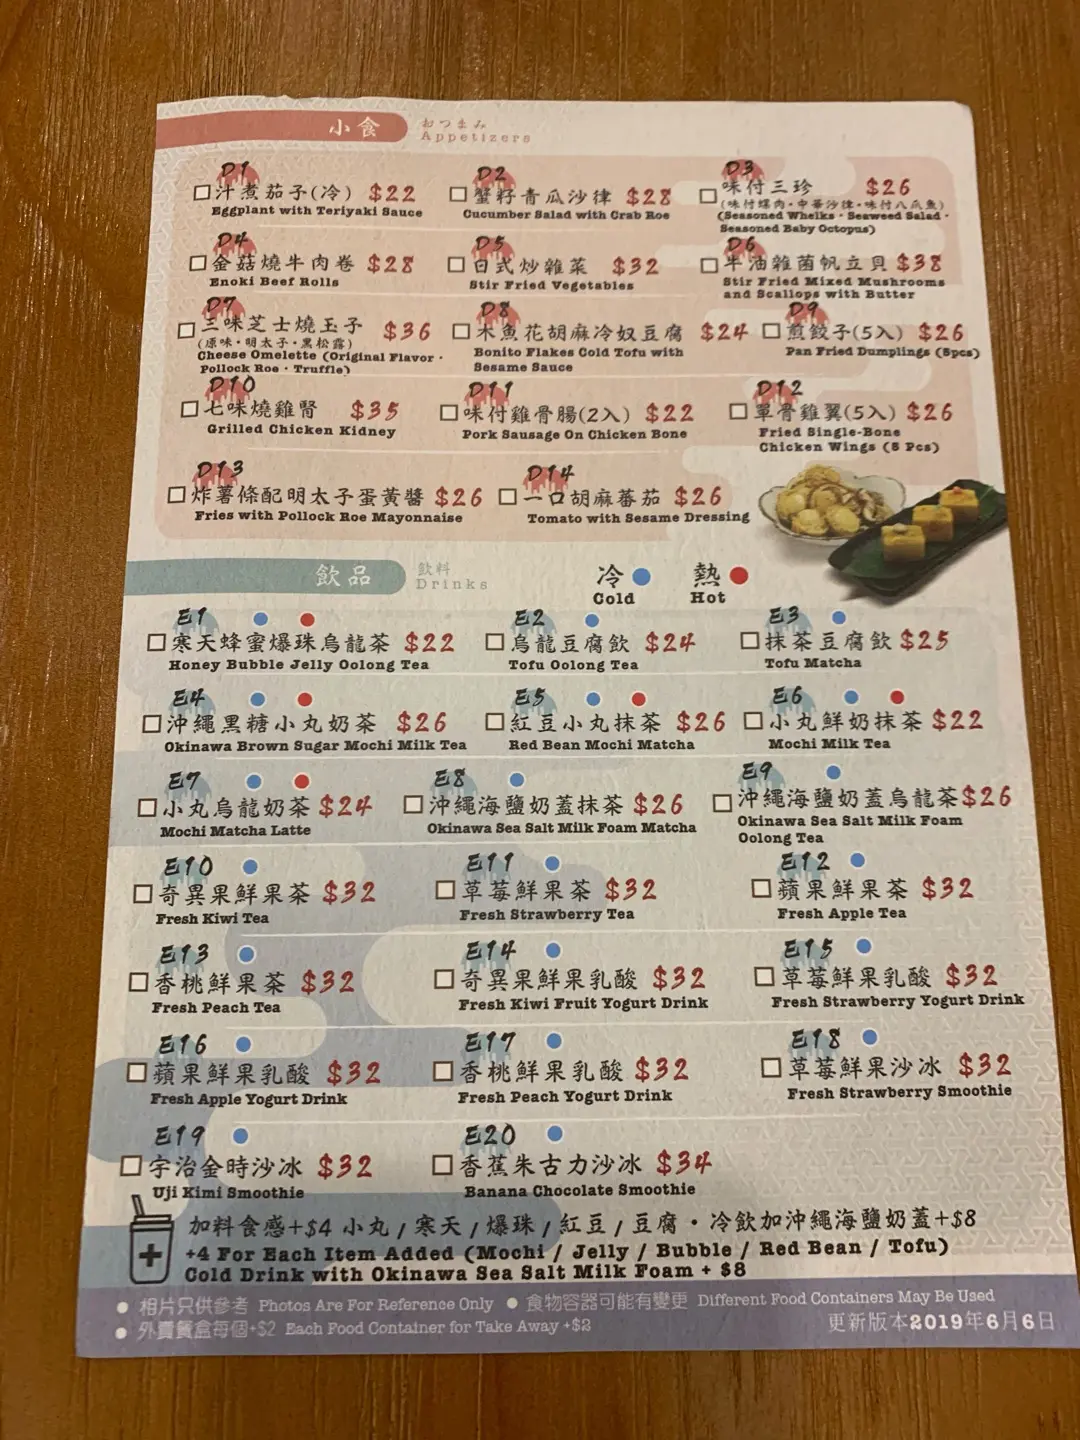 小食 おつまみ
Appetizers
D1 D2 D3
汁煮茄子(冷) $22 蟹籽青瓜沙律 $28 味付三珍 $26
Eggplant with Teriyaki Sauce Cucumber Salad with Crab Roe (味付螺肉・中華沙律・味付八爪魚)
(Seasoned Whelks・Seaweed Salad・
Seasoned Baby Octopus)
D4 D5 D6
金菇燒牛肉卷 $28 日式炒雜菜 $32 牛油雜菌帆立貝 $38
Enoki Beef Rolls Stir Fried Vegetables Stir Fried Mixed Mushrooms
and Scallops with Butter
D7 D8 D9
三味芝士燒玉子 $36 木魚花胡麻冷奴豆腐 $24 煎餃子(5入) $26
(原味・明太子・黑松露)
Cheese Omelette (Original Flavor・ Bonito Flakes Cold Tofu with Pan Fried Dumplings (5pcs)
Pollock Roe・Truffle) Sesame Sauce
D10 D11 D12
七味燒雞腎 $35 味付雞骨腸(2入) $22 單骨雞翼(5入) $26
Grilled Chicken Kidney Pork Sausage On Chicken Bone Fried Single-Bone
Chicken Wings (5 Pcs)
D13 D14
炸薯條配明太子蛋黃醬 $26 一口胡麻蕃茄 $26
Fries with Pollock Roe Mayonnaise Tomato with Sesame Dressing
飲品 飲料 冷 熱
Drinks Cold Hot
E1 E2 E3
寒天蜂蜜爆珠烏龍茶 $22 烏龍豆腐飲 $24 抹茶豆腐飲 $25
Honey Bubble Jelly Oolong Tea Tofu Oolong Tea Tofu Matcha
E4 E5 E6
沖繩黑糖小丸奶茶 $26 紅豆小丸抹茶 $26 小丸鮮奶抹茶 $22
Okinawa Brown Sugar Mochi Milk Tea Red Bean Mochi Matcha Mochi Milk Tea
E7 E8 E9
小丸烏龍奶茶 $24 沖繩海鹽奶蓋抹茶 $26 沖繩海鹽奶蓋烏龍茶 $26
Mochi Matcha Latte Okinawa Sea Salt Milk Foam Matcha Okinawa Sea Salt Milk Foam
Oolong Tea
E10 E11 E12
奇異果鮮果茶 $32 草莓鮮果茶 $32 蘋果鮮果茶 $32
Fresh Kiwi Tea Fresh Strawberry Tea Fresh Apple Tea
E13 E14 E15
香桃鮮果茶 $32 奇異果鮮果乳酸 $32 草莓鮮果乳酸 $32
Fresh Peach Tea Fresh Kiwi Fruit Yogurt Drink Fresh Strawberry Yogurt Drink
E16 E17 E18
蘋果鮮果乳酸 $32 香桃鮮果乳酸 $32 草莓鮮果沙冰 $32
Fresh Apple Yogurt Drink Fresh Peach Yogurt Drink Fresh Strawberry Smoothie
E19 E20
宇治金時沙冰 $32 香蕉朱古力沙冰 $34
Uji Kimi Smoothie Banana Chocolate Smoothie
加料食感+$4 小丸/寒天/爆珠/紅豆/豆腐・冷飲加沖繩海鹽奶蓋+$8
+4 For Each Item Added (Mochi / Jelly / Bubble / Red Bean / Tofu)
Cold Drink with Okinawa Sea Salt Milk Foam + $8
● 相片只供參考 Photos Are For Reference Only ● 食物容器可能有變更 Different Food Containers May Be Used
● 外賣餐盒每個+$2 Each Food Container for Take Away +$2 更新版本2019年6月6日